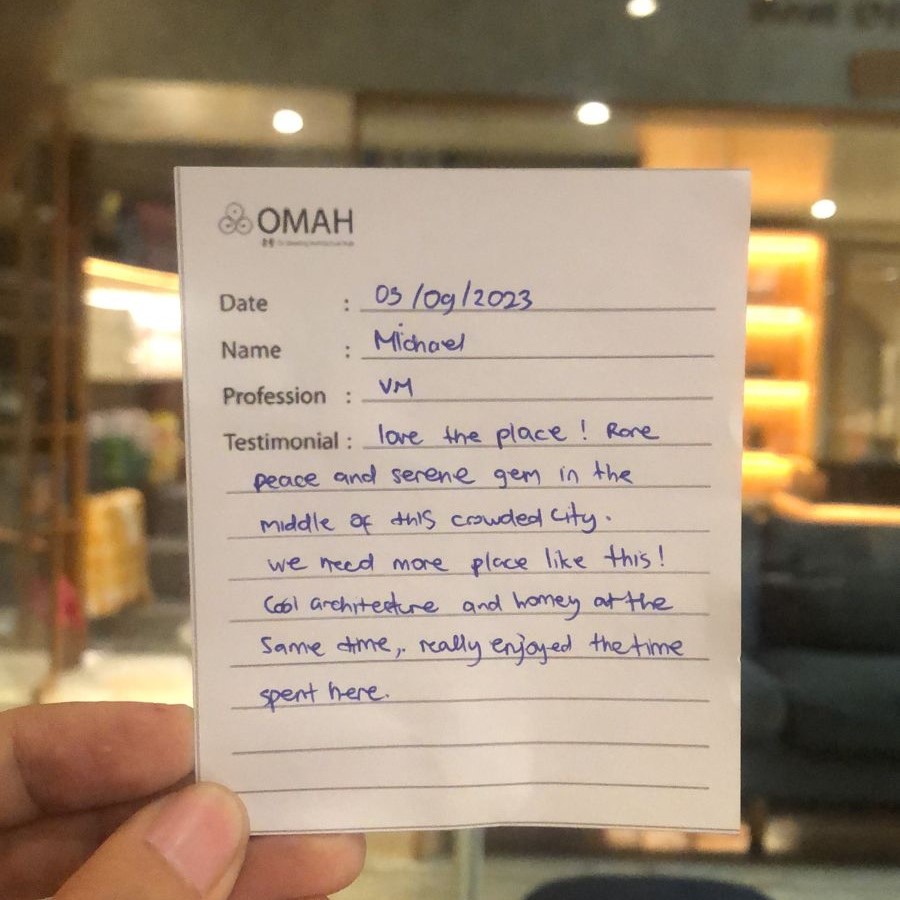 OMAH
Date : 03/09/2023
Name : Michael
Profession : VM
Testimonial : love the place! Rare
peace and serene gem in the
middle of this crowded city.
we need more place like this!
Cool architecture and homey at the
same time,. really enjoyed the time
spent here.